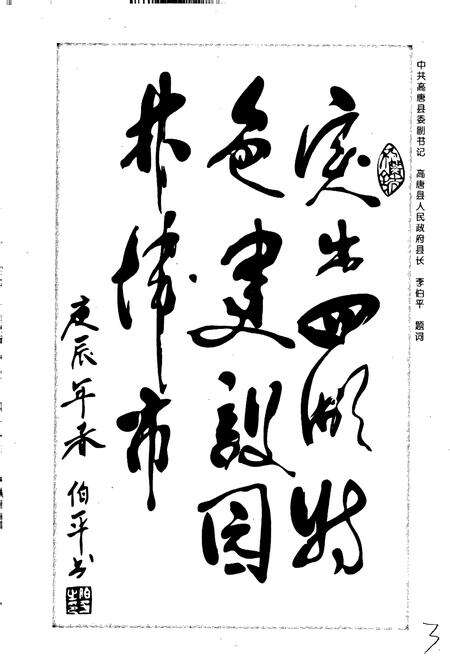 中共高唐县委副书记 高唐县人民政府县长 李伯平 题词
突出四湖特
色建设园
林城市
庚辰年春 伯平书
3